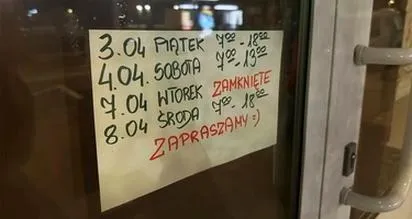 3.04 PIĄTEK 7⁰⁰ - 18⁰⁰
4.04. SOBOTA 7⁰⁰ - 13⁰⁰
7.04 WTOREK ZAMKNIĘTE
8.04 ŚRODA 7⁰⁰ - 18⁰⁰
ZAPRASZAMY =)